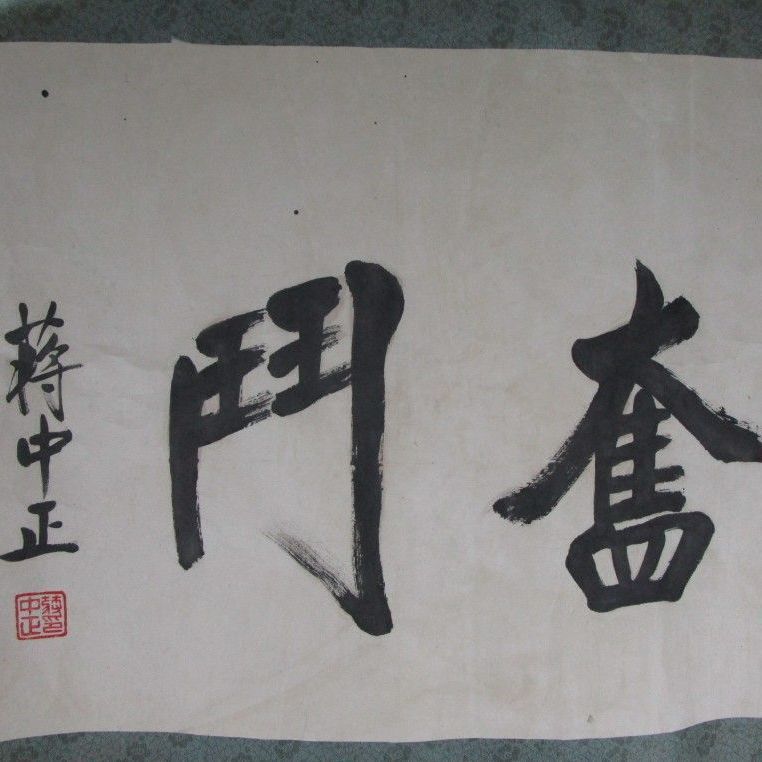 奮鬥
蔣中正
蔣中正印